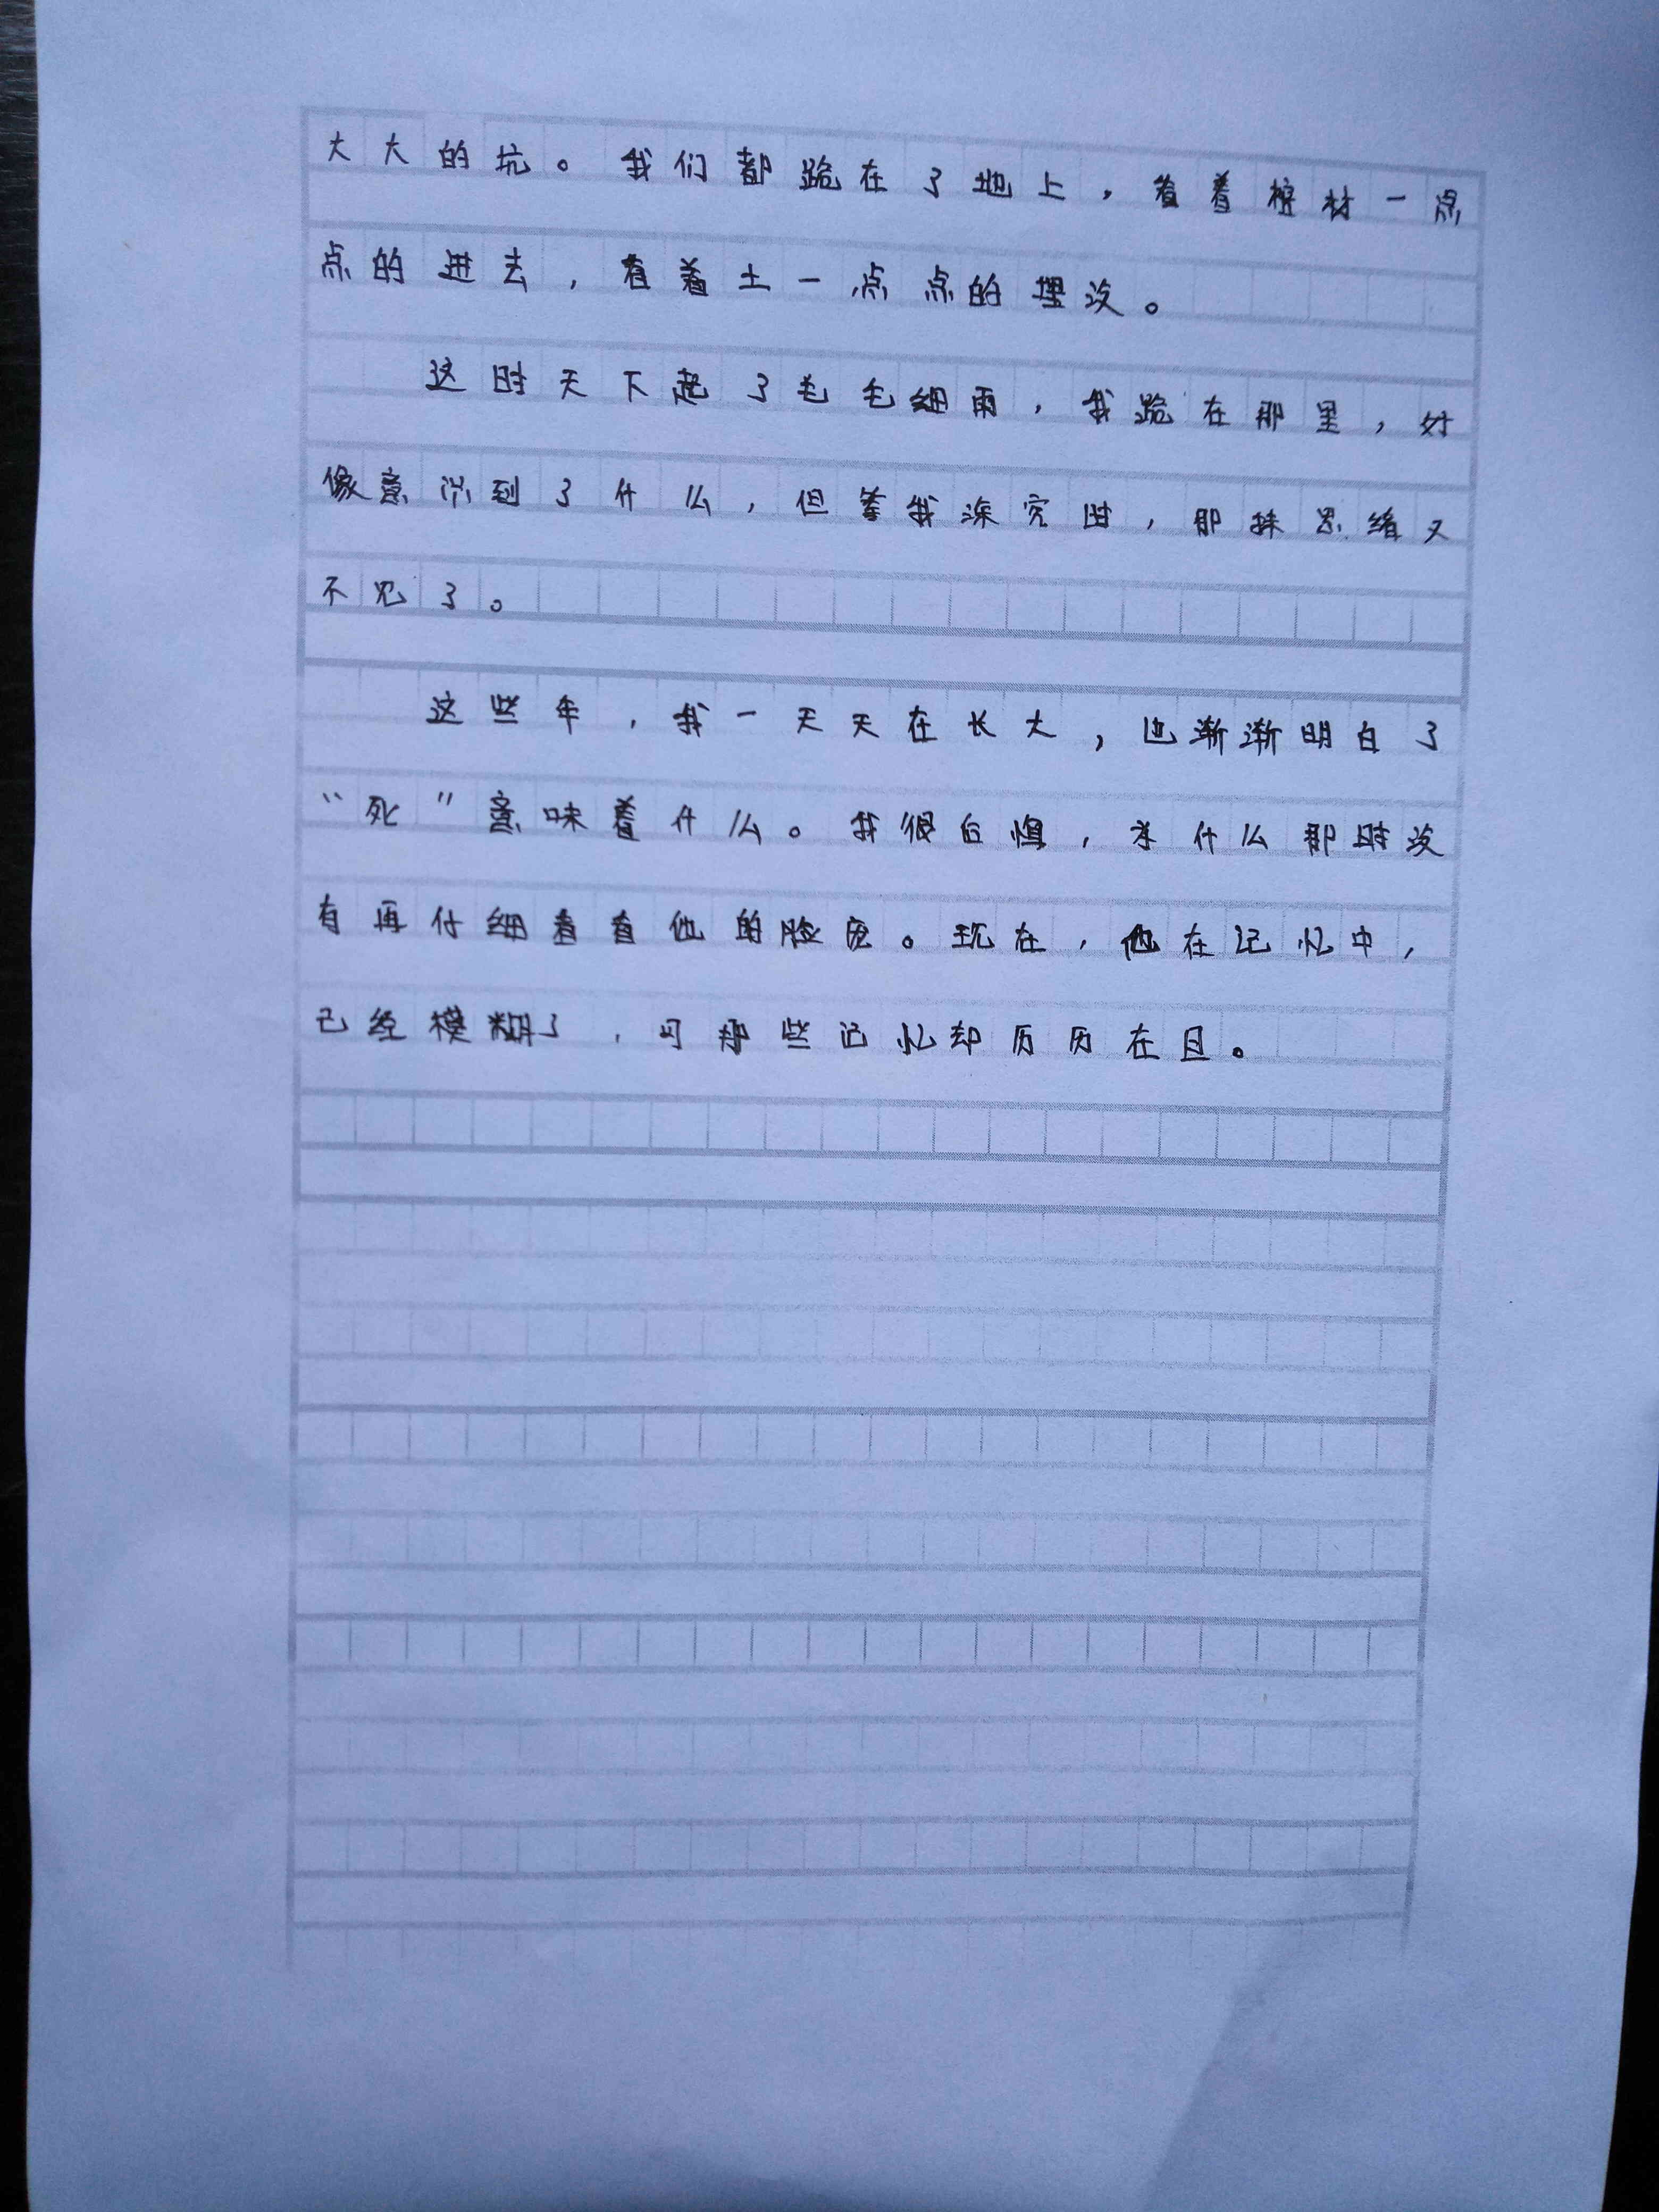 大大的坑。我们都跪在了地上，看着棺材一点
点的进去，看着土一点点的埋没。
这时天下起了毛毛细雨，我跪在那里，好
像意识到了什么，但等我深究时，那抹思绪又
不见了。
这些年，我一天天在长大，也渐渐明白了
“死”意味着什么。我很后悔，为什么那时没
有再仔细看看他的脸庞。现在，他在记忆中，
已经模糊了，可那些记忆却历历在目。